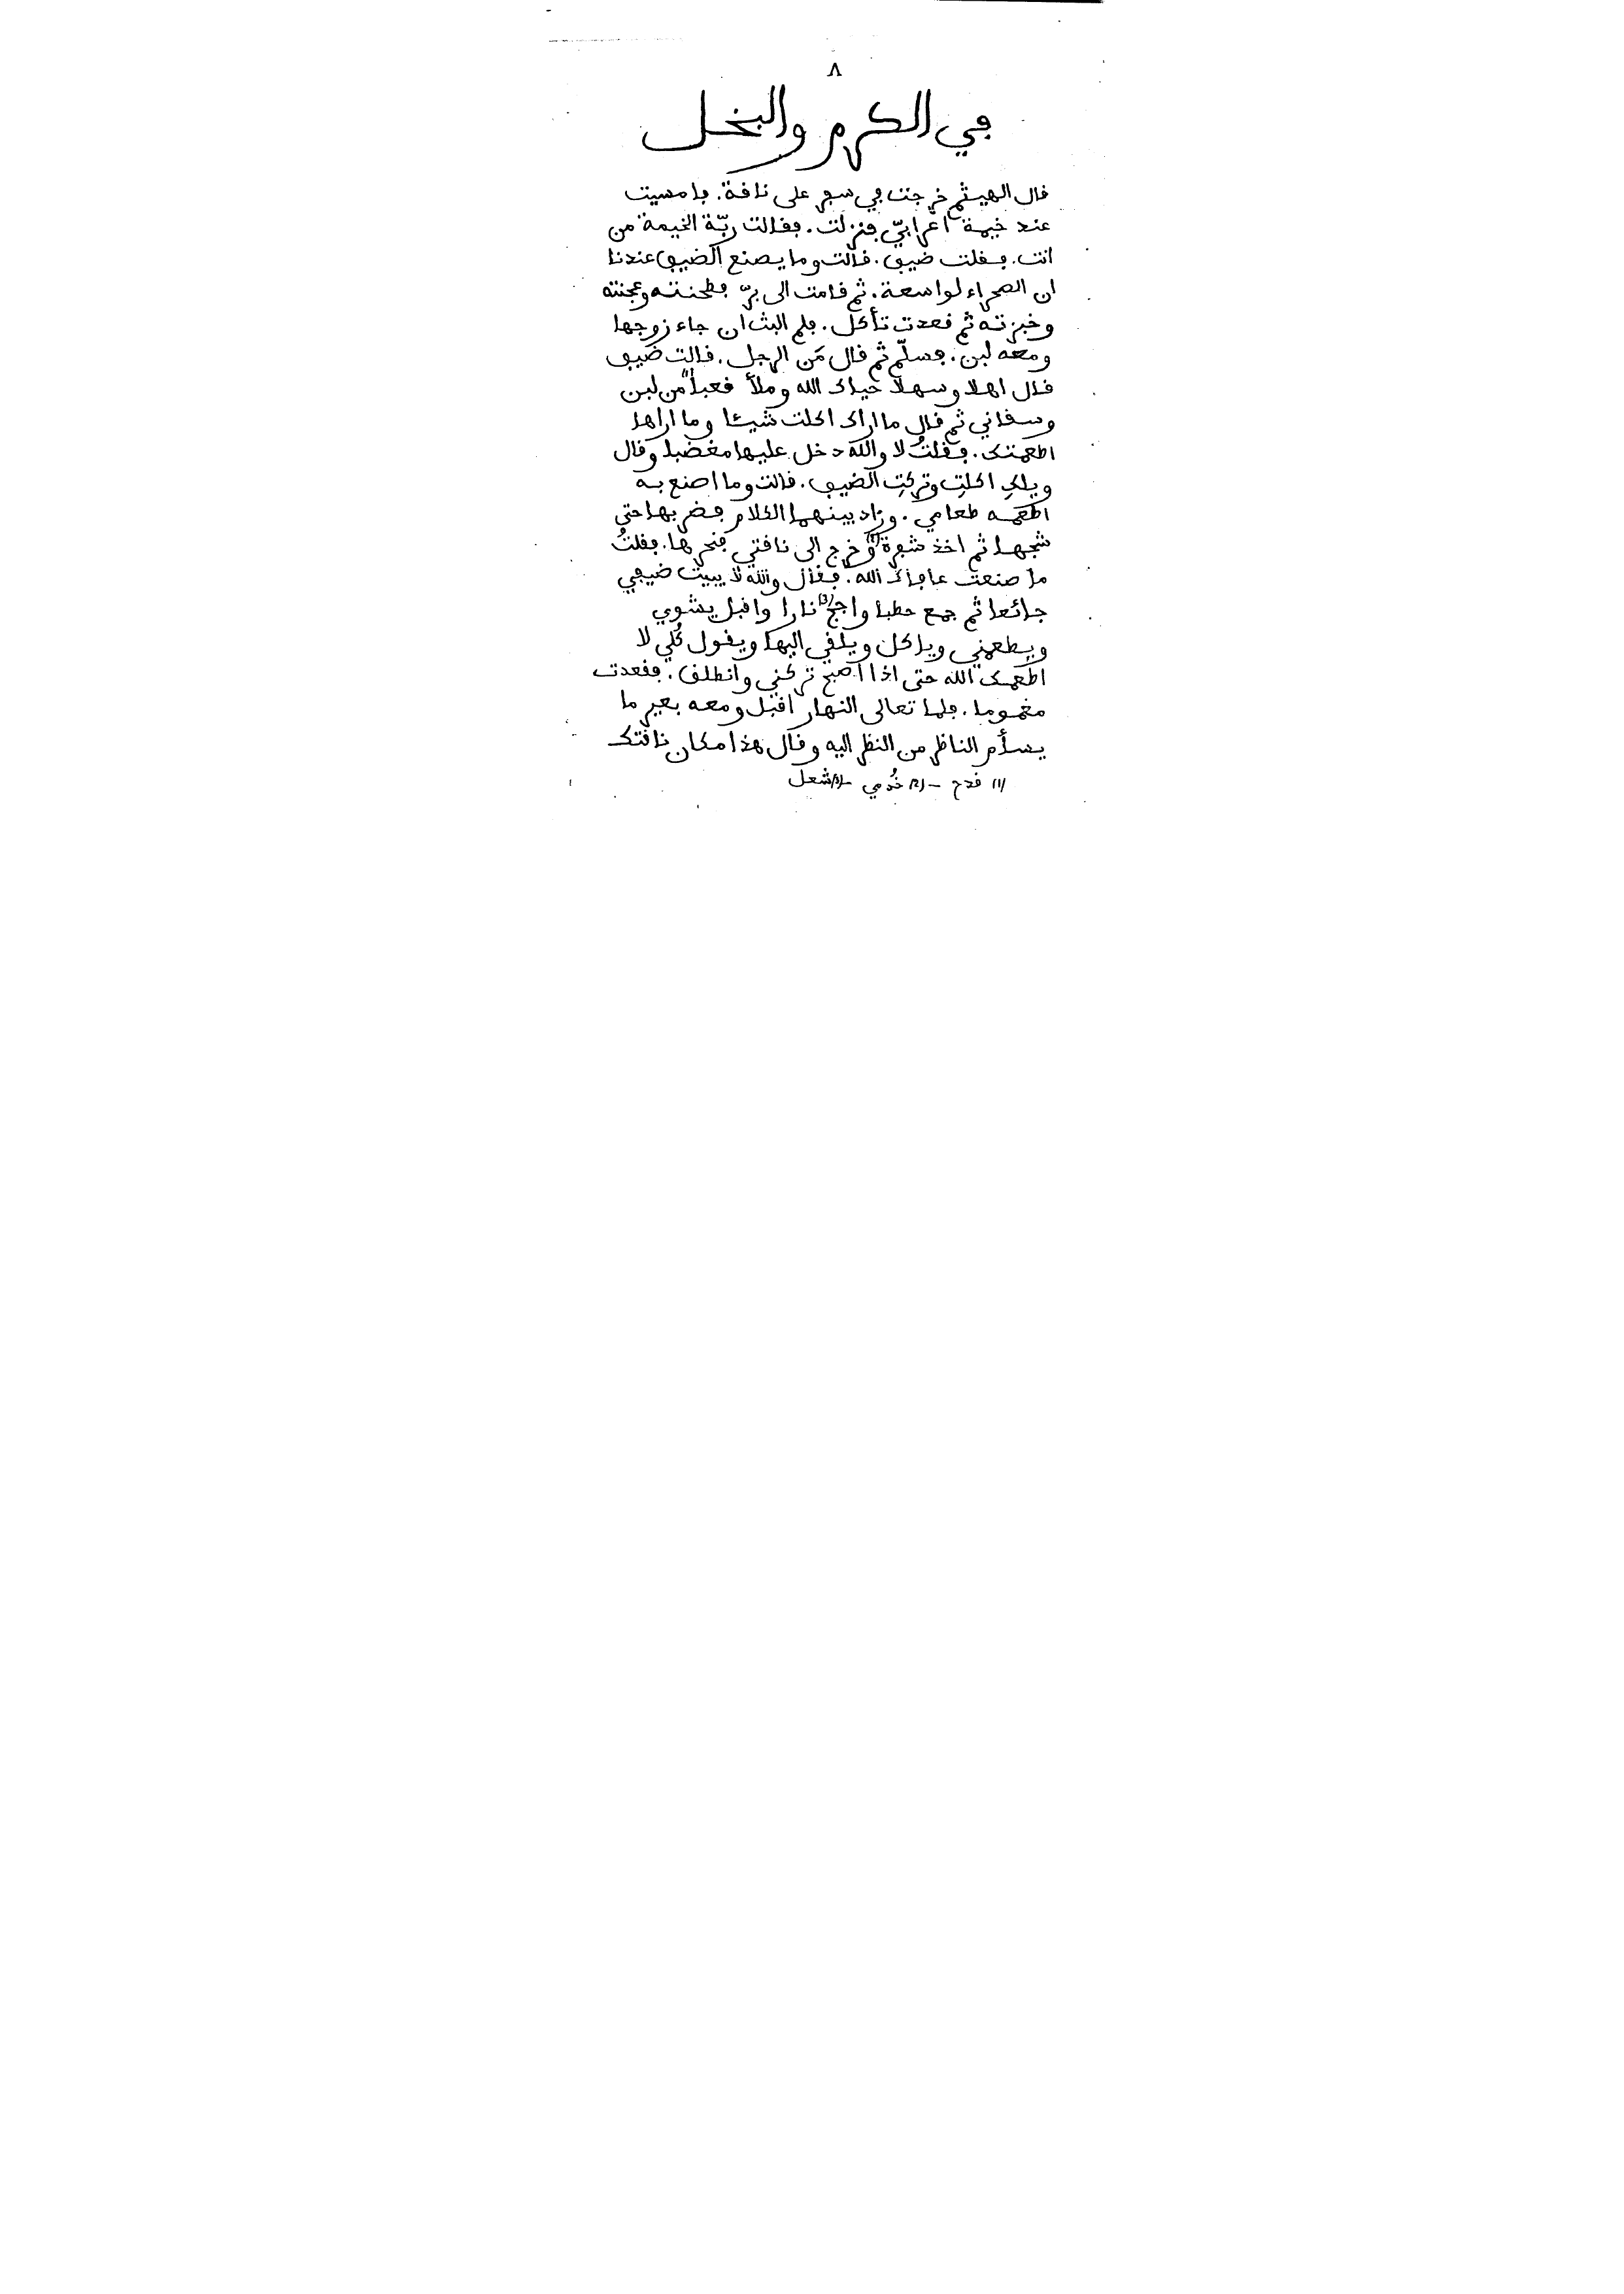 ٨
في الكرم والبخل
قال الهيثم خرجت في سفر على ناقة. فامسيت
عند خيمة اعرابيّ فنزلت. فقالت ربّة الخيمة من
انت. فقلت ضيف. قالت وما يصنع الضيف عندنا
ان الصحراء لواسعة. ثم قامت الى برّ فطحنته وعجنته
وخبزته ثم قعدت تأكل. فلم البث ان جاء زوجها
ومعه لبن. فسلّم ثم قال مَن الرجل. قالت ضيف
قال اهلا وسهلا حياك الله وملأ قعبا(1) من لبن
وسقاني ثم قال ما اراك اكلت شيئا وما اراها
اطعمتك. فقلتُ لا والله دخل عليها مغضبا وقال
ويلكِ اكلتِ وتركتِ الضيف. قالت وما اصنع به
اطعمه طعامي. وزاد بينهما الكلام فضربها حتى
شجها ثم اخذ شفرة(2) وخرج الى ناقتي فنحرها. فقلتُ
ما صنعت عافاك الله. فقال والله لا يبيت ضيفي
جائعا ثم جمع حطبا واجج(3) نارا واقبل يشوي
ويطعمني وياكل ويلقي اليها ويقول كُلي لا
اطعمك الله حتى اذا اصبح تركني وانطلق. فقعدت
مغموما. فلما تعالى النهار اقبل ومعه بعير ما
يسأم الناظر من النظر اليه وقال هذا مكان ناقتك
(1) قدح – (2) خُدمي – (3) شعل